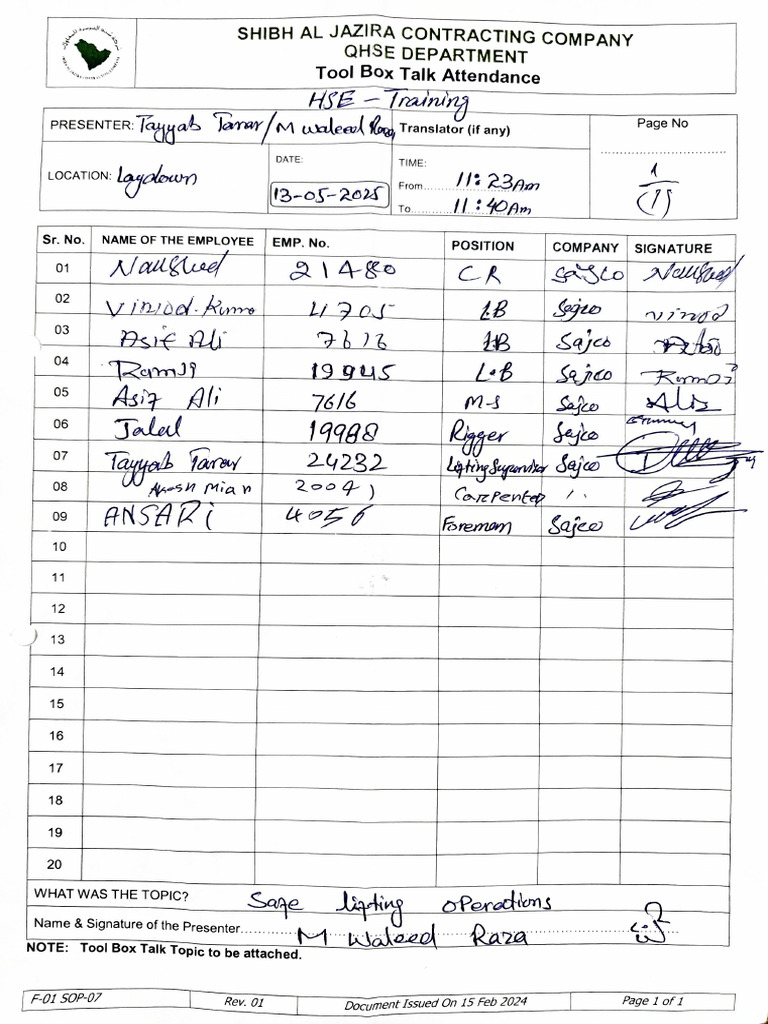 SHIBH AL JAZIRA CONTRACTING COMPANY
QHSE DEPARTMENT
Tool Box Talk Attendance
HSE - Training
PRESENTER: Tayyab Tarar / M Waleed Raza Translator (if any) Page No
LOCATION: Laydown DATE: 13-05-2025 TIME:
From 11:23Am
To 11:40Am
1/(1)
Sr. No. NAME OF THE EMPLOYEE EMP. No. POSITION COMPANY SIGNATURE
01 Naushed 21480 CR sajco Naushed
02 Viniod.Kumo 4705 LB Sajco vinod
03 Asif Ali 7616 LB Sajco
04 Ramji 19945 L.B Sajico
05 Asif Ali 7616 M-S Sajco Ali
06 Jalal 19988 Rigger Sajco
07 Tayyab Tarar 24232 Lifting Supervisor Sajco
08 Mian 20041 Carpenter ,,
09 ANSARi 4056 Foremam Sajco
10
11
12
13
14
15
16
17
18
19
20
WHAT WAS THE TOPIC? Safe lifting operations
Name & Signature of the Presenter M Waleed Raza
NOTE: Tool Box Talk Topic to be attached.
F-01 SOP-07 Rev. 01 Document Issued On 15 Feb 2024 Page 1 of 1